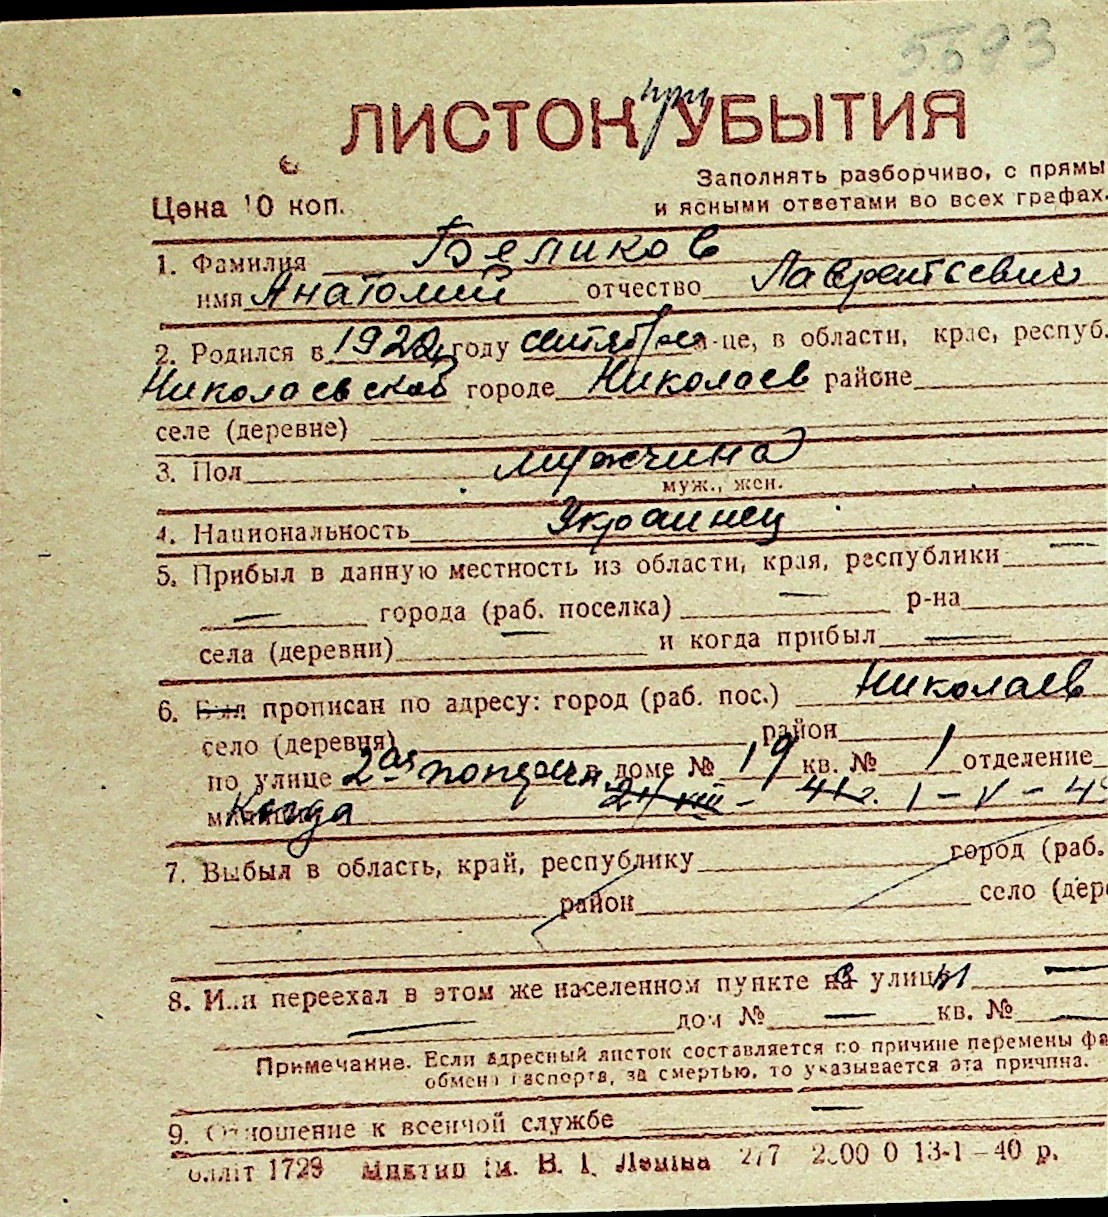 5593
ЛИСТОК при УБЫТИЯ
Цена 10 коп.
Заполнять разборчиво, с прямы
и ясными ответами во всех графах.
1. Фамилия Беликов
имя Анатолий отчество Лаврентьевич
2. Родился в 1922 году сентября м-це, в области, крае, респуб.
Николаевской городе Николаев районе
селе (деревне)
3. Пол мужчина
муж., жен.
4. Национальность Украинец
5. Прибыл в данную местность из области, края, республики —
— города (раб. поселка) — р-на
села (деревни) — и когда прибыл —
6. Был прописан по адресу: город (раб. пос.) Николаев
село (деревня) район
по улице 2ая поперечн. в доме № 19 кв. № 1 отделение
Когда 24 VIII - 41г. 1 - V - 4
7. Выбыл в область, край, республику город (раб.
район село (дер
8. Или переехал в этом же населенном пункте с улицы —
— дом № — кв. № —
Примечание. Если адресный листок составляется по причине перемены фа
обмена паспорта, за смертью, то указывается эта причина.
9. Отношение к военной службе —
блліт 1729 ім. В. І. Леніна 277 2000 0 13-1-40 р.